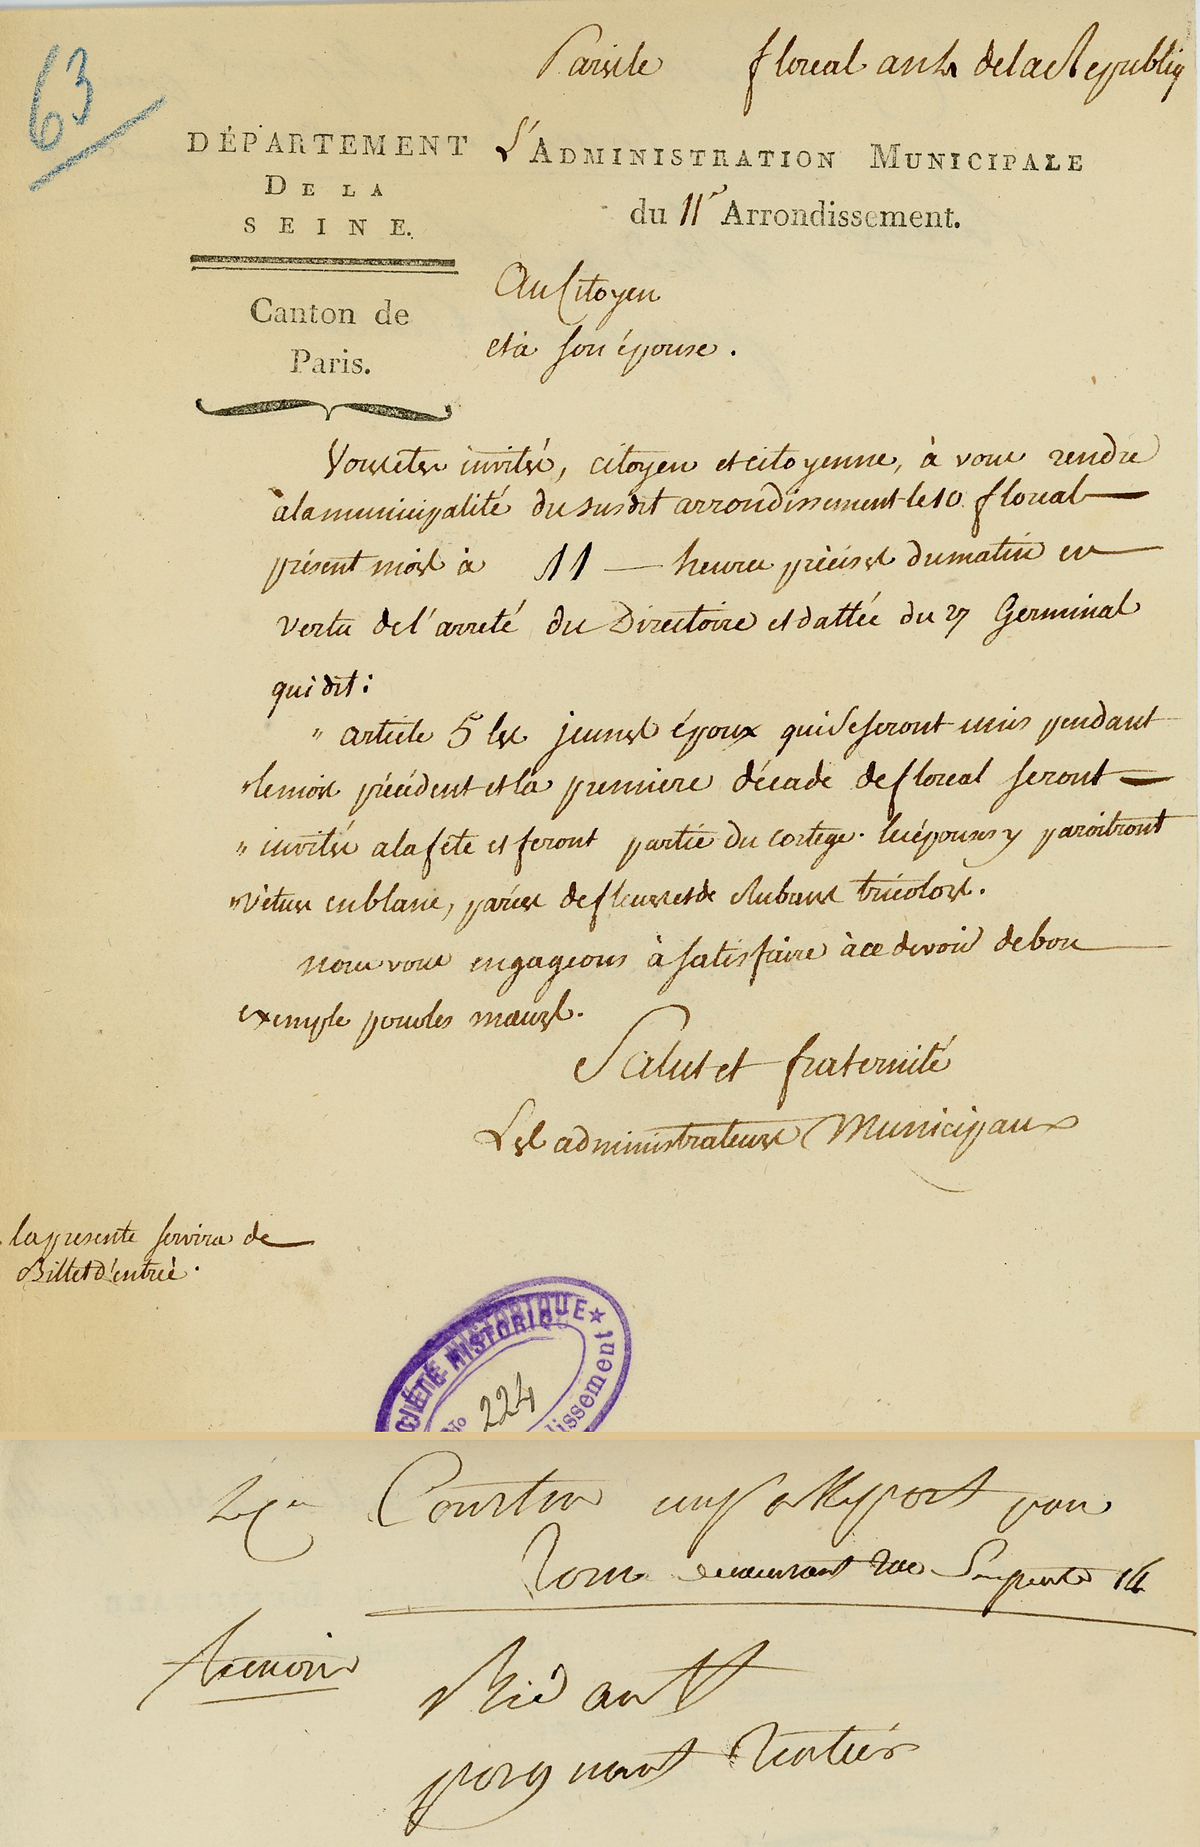 63
Paris le floreal an 4 de la Republiq
DÉPARTEMENT
DE LA
SEINE.
Canton de
Paris.
L'ADMINISTRATION MUNICIPALE
du 11e Arrondissement.
Au Citoyen
et à son épouse.
Vous etes invités, citoyen et citoyenne, à vous rendre
a la municipalité du susdit arrondissement le 10 floreal
présent mois à 11 heures précises du matin en
vertu de l'arreté du Directoire et dattée du 27 Germinal
qui dit:
" article 5 les jeunes époux qui se seront unis pendant
" le mois précédent et la premiere décade de floreal seront
" invités a la fete et feront partie du cortege. les épouses y paroitront
" vetues en blanc, parées de fleurs et de Rubans tricolors.
nous vous engageons à satisfaire à ce devoir de bon
exemple pour les mœurs.
Salut et fraternité
Les administrateurs Municipaux
la presente servira de
Billet d'entrée.
CIÉTÉ HISTORIQUE
No 224
dissement
Courtin
rue Serpente 14
temoins